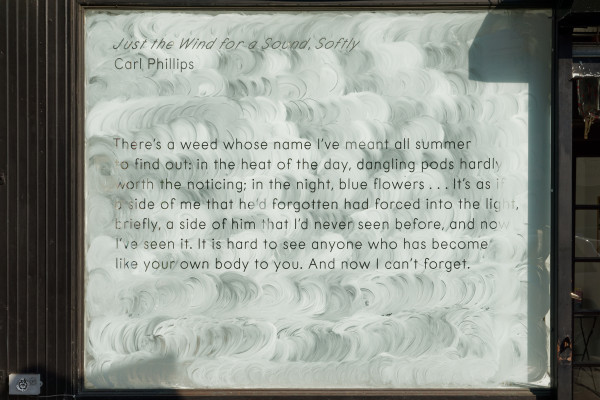 Just the Wind for a Sound, Softly
Carl Phillips
There's a weed whose name I've meant all summer
to find out: in the heat of the day, dangling pods hardly
worth the noticing; in the night, blue flowers . . . It's as if
a side of me that he'd forgotten had forced into the light,
briefly, a side of him that I'd never seen before, and now
I've seen it. It is hard to see anyone who has become
like your own body to you. And now I can't forget.